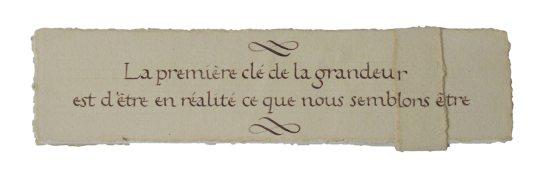 La première clé de la grandeur
est d'être en réalité ce que nous semblons être